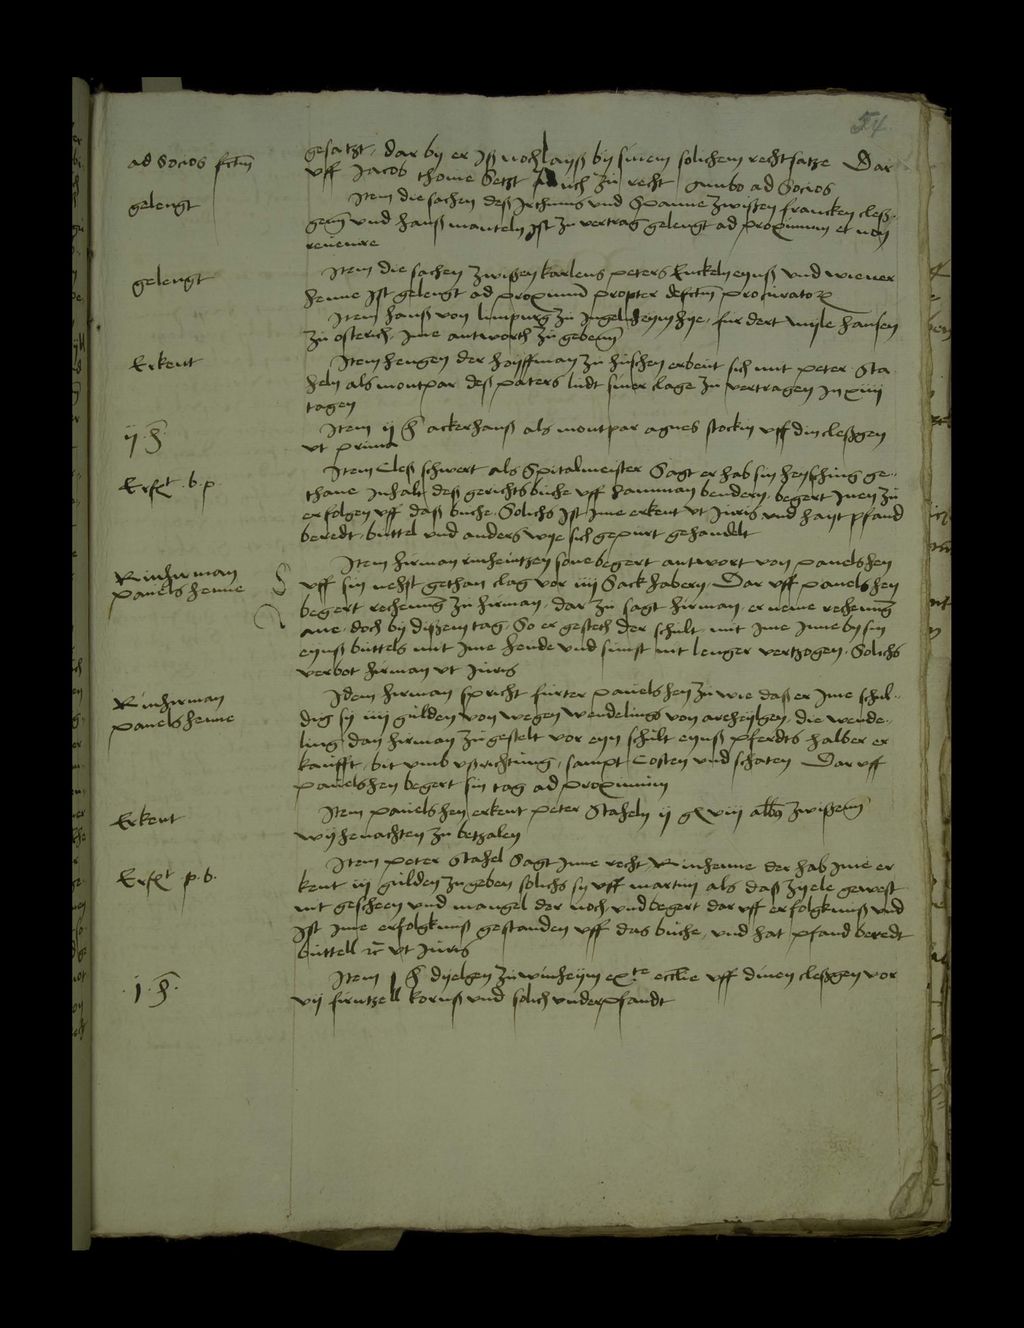 54
ad socios fctm
gesatzt, dar by er Iß noch layß by sinem solichem rechtsatze Dar
uff Jacob thome Setzt auch zu recht ambo ad Socios
gelengt
Item die sachen deß Irthums und Spanne zwißen francken cleß-
gem̄ und hanß manteln Ist zu vertrag gelengt ad proximum et non
gelengt
Item die sachen zwißen karlens peters Enckeln eynß und wiener
henne Ist gelengt ad proximū propter defctm procurator
Item hanß von limpurg zu Ingelnheym hye, fur dert wyle hansen
zu osterich Ime antworth zu geben
Erkent
Item hengen der hoyffman zu huschen erbeut sich mit peter Sta
heln als montpar deß paters ludt siner clage zu vertragen In xiiij
tagen
ij. h̄.
Item ij h̄ ackerhanß als montpar agnes stockin uff din cleßgen
ut prima
Erfolgt. b. p.
Item Cleß schwert als Spitalmeister Sagt er hab sin heyschung ge-
thane Inhalt deß gerichts buchs uff hamman bendern, begert Inen zu
erfolgen uff daß buche, Solichs Ist Ime erkent ut Iuris und hayt pfand
beredt, buttel und anders wye sich gepurt gehandelt
Rinhirman
pauels henne
Item hirman rinheintzen sone begert antwort von pauelshen
uff sin nehst gethan clag vor iiij Sack habern. Dar uff pauelshen
begert rechenung zu hirman, dar zu sagt hirman, er neme rechenung
ane, doch by dißem tag, So er gesteh der schult mit Ime Inne by sin
eynß buttels mit Ime hende und sunst nit lenger vertzogen. Solichs
verbot hirman ut Iuris
Rinhirman
pauels henne
Idem hirman spricht furter pauelshen zu wie daß er Ime schul-
dig sy iiij gulden von wegen wendelings von areheylgen, die wende-
ling dan hirman zu gestelt vor eyn schult eynß pferdts halber er
kaufft, bit umb ußrichtung, sampt Costen und schaten Dar uff
pauelshen begert sin tag ad proximum
Erkent
Item pauelshen erkent peter Staheln ij g viij alb zwißem
wyhenachten zu betzalen
Erfolgt p. b.
Item peter Stahel Sagt Ime recht Rinhenne der hab Ime er
kent iij gulden zu geben solichs sy uff martini als daß zyele gewest
nit gescheen und mangel der noch und begert dar uff erfolgknuß und
Ist Ime erfolgknuß gestanden uff das buche, und hat pfand beredt
buttell rc ut Iuris
.j. h̄.
Item j h̄ dyelgen zu winheym ex te ecclie uff dinen cleßgen vor
vij firntzell kornß und solich underpfandt